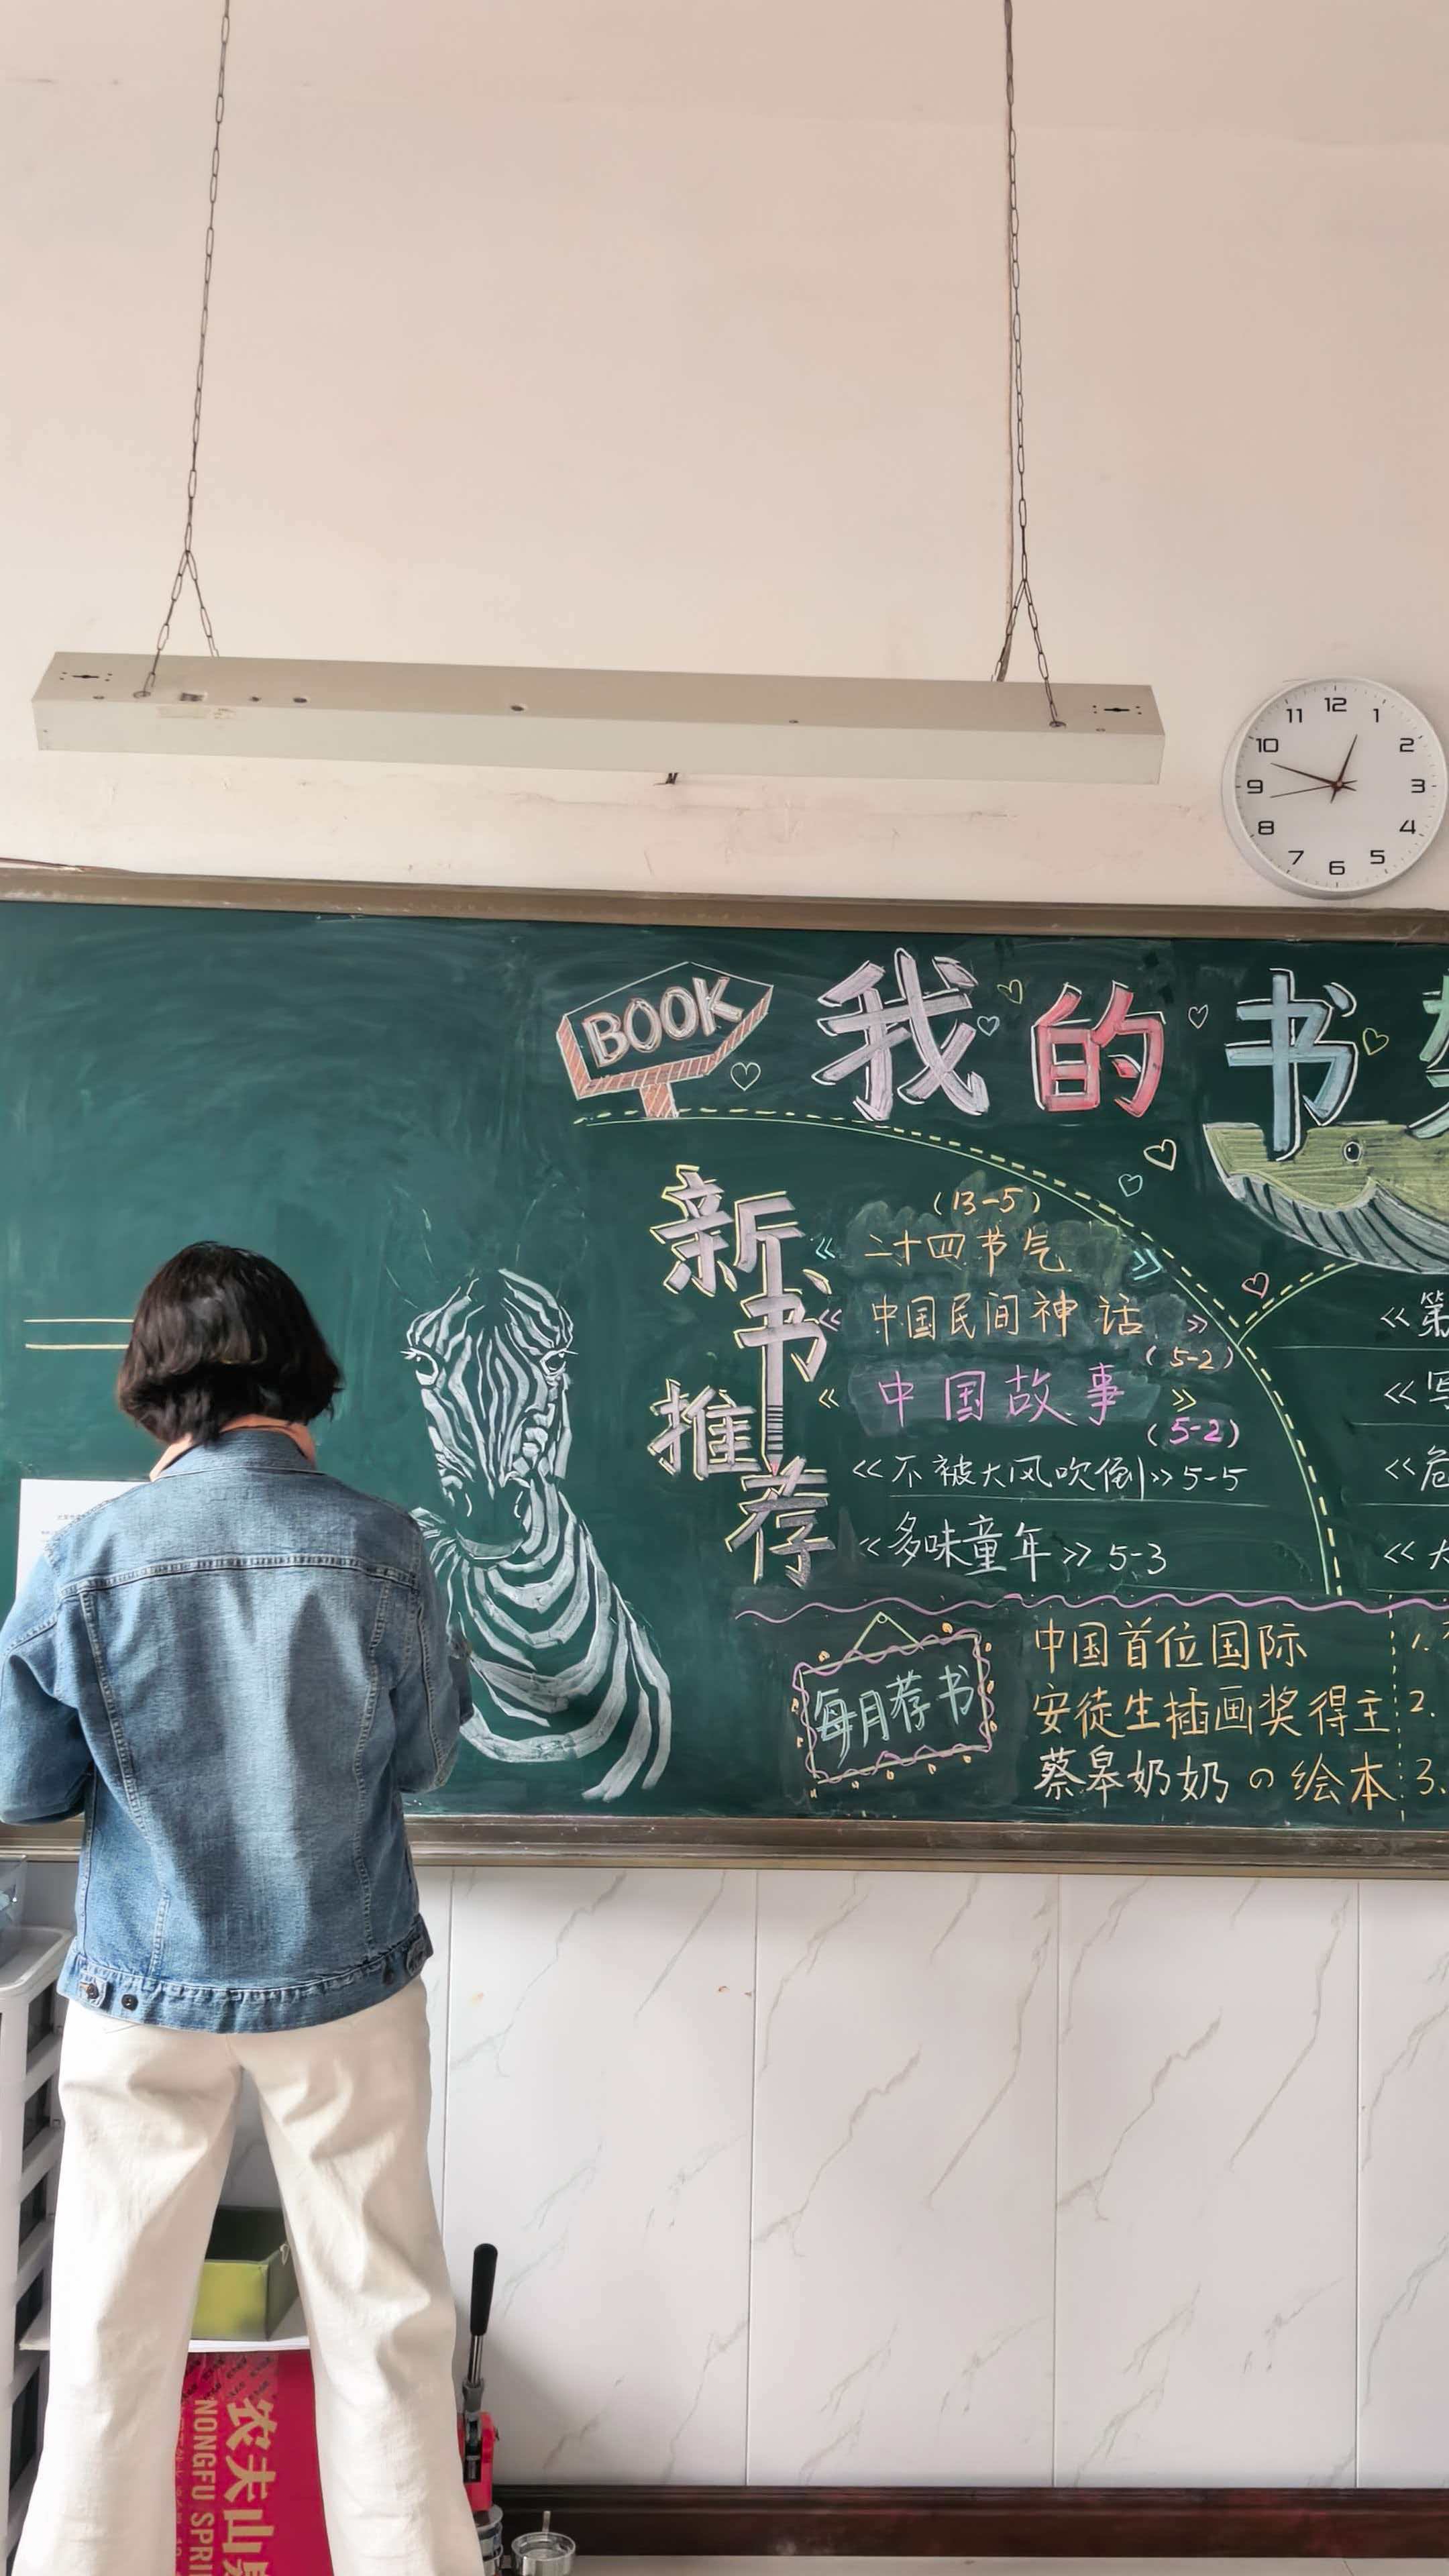 12
11
1
10
2
9
3
8
4
7
5
6
BOOK
我的书
新书推荐
(13-5)
《二十四节气》
《中国民间神话》
(5-2)
《中国故事》
(5-2)
《不被大风吹倒》5-5
《多味童年》5-3
《第
《写
《危
《大
每月荐书
中国首位国际
安徒生插画奖得主
蔡皋奶奶の绘本
1.
2.
3.
农夫山
NONGFU SPRI